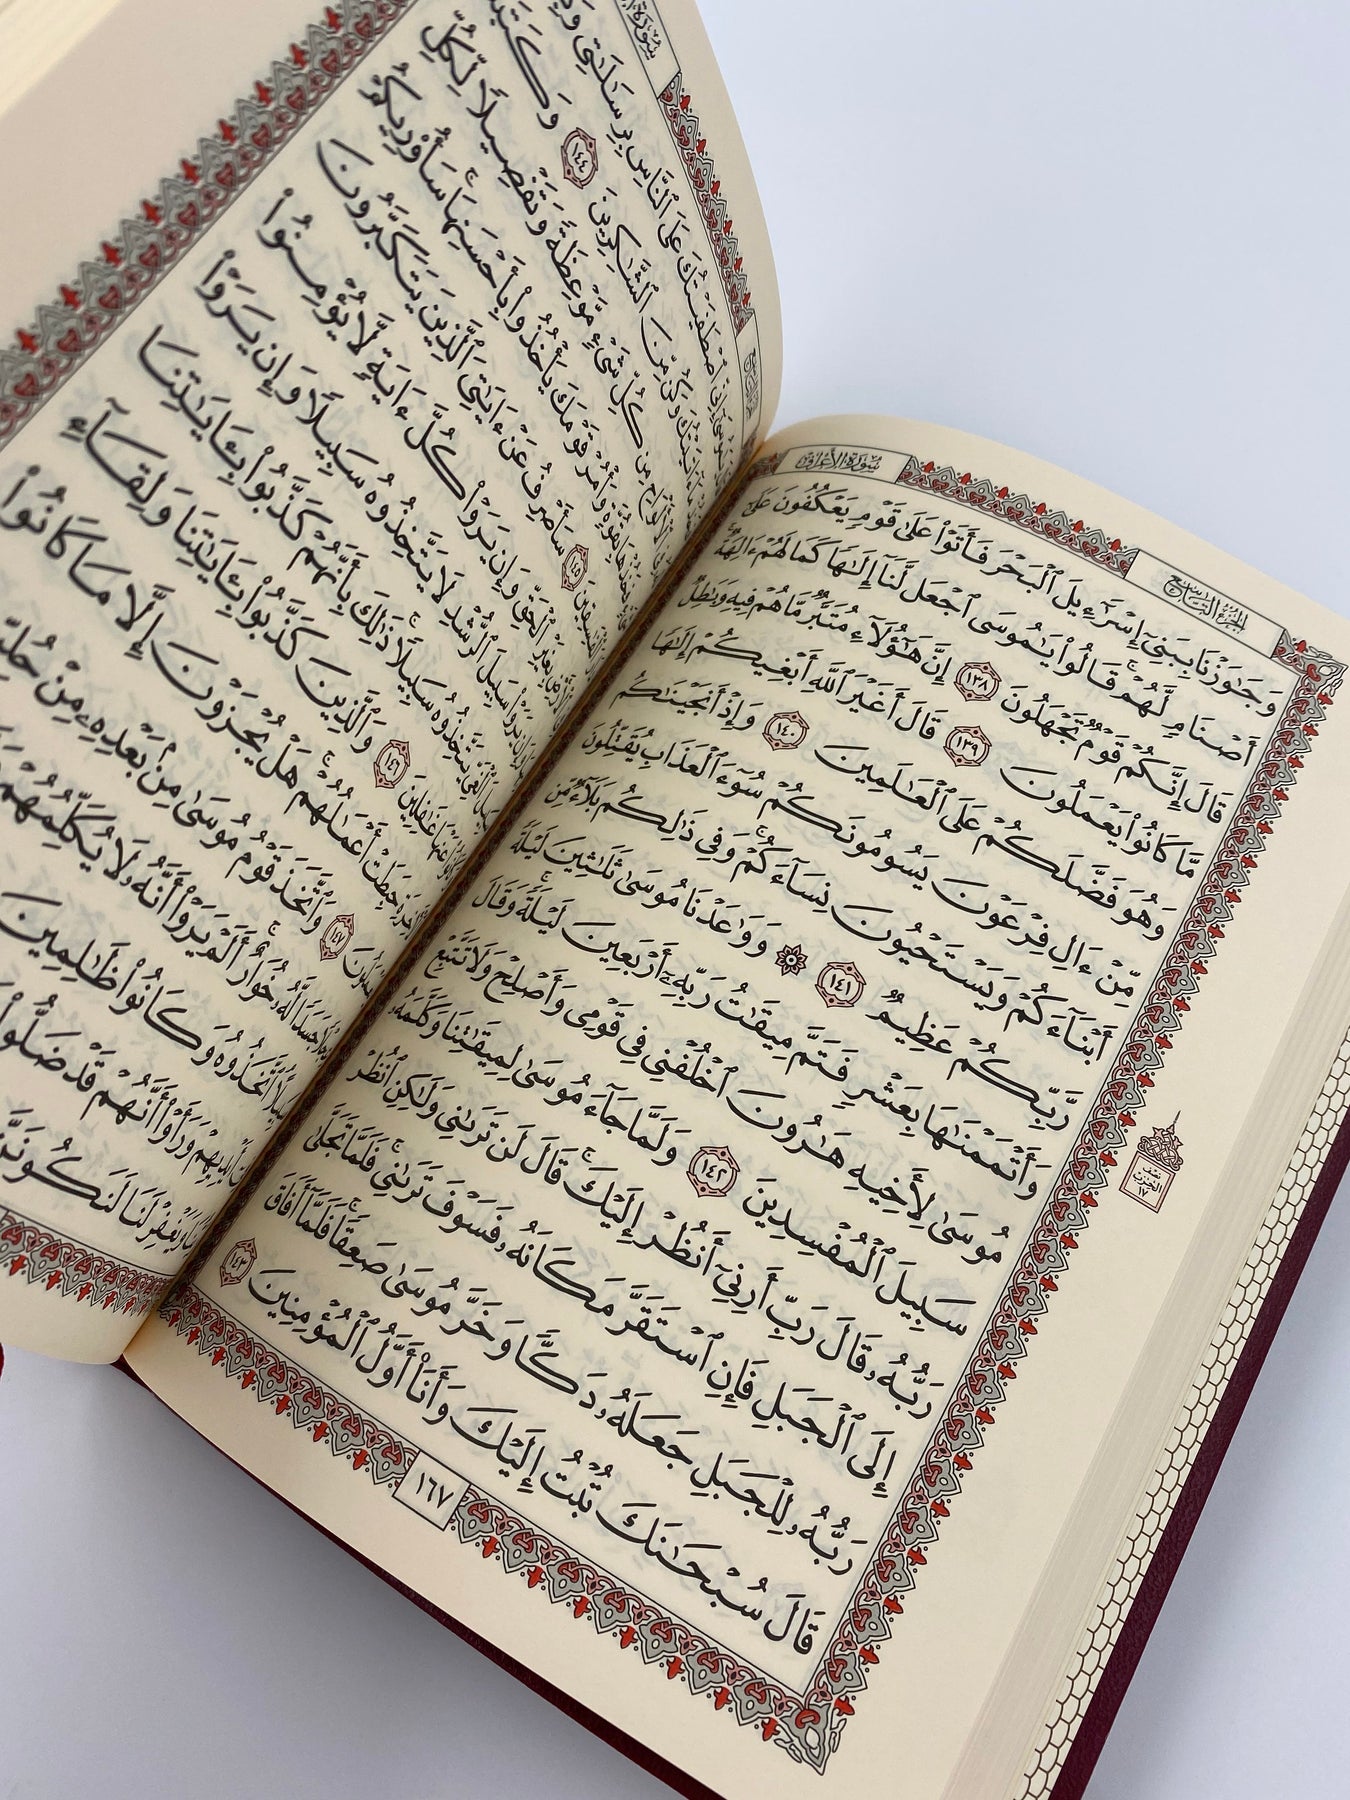 سُورَةُ الأَعْرَافِ
الجُزْءُ التَّاسِعُ
وَجَٰوَزْنَا بِبَنِىٓ إِسْرَٰٓءِيلَ ٱلْبَحْرَ فَأَتَوْا۟ عَلَىٰ قَوْمٍ يَعْكُفُونَ عَلَىٰٓ
أَصْنَامٍ لَّهُمْ ۚ قَالُوا۟ يَٰمُوسَى ٱجْعَل لَّنَآ إِلَٰهًا كَمَا لَهُمْ ءَالِهَةٌ ۚ
قَالَ إِنَّكُمْ قَوْمٌ تَجْهَلُونَ ١٣٨ إِنَّ هَٰٓؤُلَآءِ مُتَبَّرٌ مَّا هُمْ فِيهِ وَبَٰطِلٌ
مَّا كَانُوا۟ يَعْمَلُونَ ١٣٩ قَالَ أَغَيْرَ ٱللَّهِ أَبْغِيكُمْ إِلَٰهًا
وَهُوَ فَضَّلَكُمْ عَلَى ٱلْعَٰلَمِينَ ١٤٠ وَإِذْ أَنجَيْنَٰكُم
مِّنْ ءَالِ فِرْعَوْنَ يَسُومُونَكُمْ سُوٓءَ ٱلْعَذَابِ ۖ يُقَتِّلُونَ
أَبْنَآءَكُمْ وَيَسْتَحْيُونَ نِسَآءَكُمْ ۚ وَفِى ذَٰلِكُم بَلَآءٌ مِّن
رَّبِّكُمْ عَظِيمٌ ١٤١ ۞ وَوَٰعَدْنَا مُوسَىٰ ثَلَٰثِينَ لَيْلَةً
وَأَتْمَمْنَٰهَا بِعَشْرٍ فَتَمَّ مِيقَٰتُ رَبِّهِۦٓ أَرْبَعِينَ لَيْلَةً ۚ وَقَالَ
مُوسَىٰ لِأَخِيهِ هَٰرُونَ ٱخْلُفْنِى فِى قَوْمِى وَأَصْلِحْ وَلَا تَتَّبِعْ
سَبِيلَ ٱلْمُفْسِدِينَ ١٤٢ وَلَمَّا جَآءَ مُوسَىٰ لِمِيقَٰتِنَا وَكَلَّمَهُۥ
رَبُّهُۥ قَالَ رَبِّ أَرِنِىٓ أَنظُرْ إِلَيْكَ ۚ قَالَ لَن تَرَىٰنِى وَلَٰكِنِ ٱنظُرْ
إِلَى ٱلْجَبَلِ فَإِنِ ٱسْتَقَرَّ مَكَانَهُۥ فَسَوْفَ تَرَىٰنِى ۚ فَلَمَّا تَجَلَّىٰ
رَبُّهُۥ لِلْجَبَلِ جَعَلَهُۥ دَكًّا وَخَرَّ مُوسَىٰ صَعِقًا ۚ فَلَمَّآ أَفَاقَ
قَالَ سُبْحَٰنَكَ تُبْتُ إِلَيْكَ وَأَنَا۠ أَوَّلُ ٱلْمُؤْمِنِينَ ١٤٣
نصف الحزب ١٧
١٦٧
سُورَةُ
إِنِّى ٱصْطَفَيْتُكَ عَلَى ٱلنَّاسِ بِرِسَٰلَٰتِى
وَكُن مِّنَ ٱلشَّٰكِرِينَ ١٤٤ وَكَتَبْنَا
مِن كُلِّ شَىْءٍ مَّوْعِظَةً وَتَفْصِيلًا لِّكُلِّ
فَخُذْهَا بِقُوَّةٍ وَأْمُرْ قَوْمَكَ يَأْخُذُوا۟ بِأَحْسَنِهَا ۚ سَأُو۟رِيكُمْ
١٤٥ سَأَصْرِفُ عَنْ ءَايَٰتِىَ ٱلَّذِينَ يَتَكَبَّرُونَ
بِغَيْرِ ٱلْحَقِّ وَإِن يَرَوْا۟ كُلَّ ءَايَةٍ لَّا يُؤْمِنُوا۟
يَرَوْا۟ سَبِيلَ ٱلرُّشْدِ لَا يَتَّخِذُوهُ سَبِيلًا وَإِن يَرَوْا۟
ٱلْغَىِّ يَتَّخِذُوهُ سَبِيلًا ۚ ذَٰلِكَ بِأَنَّهُمْ كَذَّبُوا۟ بِـَٔايَٰتِنَا
عَنْهَا غَٰفِلِينَ ١٤٦ وَٱلَّذِينَ كَذَّبُوا۟ بِـَٔايَٰتِنَا وَلِقَآءِ
حَبِطَتْ أَعْمَٰلُهُمْ ۚ هَلْ يُجْزَوْنَ إِلَّا مَا كَانُوا۟
١٤٧ وَٱتَّخَذَ قَوْمُ مُوسَىٰ مِنۢ بَعْدِهِۦ مِنْ
جَسَدًا لَّهُۥ خُوَارٌ ۚ أَلَمْ يَرَوْا۟ أَنَّهُۥ لَا يُكَلِّمُهُمْ
ٱتَّخَذُوهُ وَكَانُوا۟ ظَٰلِمِينَ
وَرَأَوْا۟ أَنَّهُمْ قَدْ ضَلُّوا۟
وَيَغْفِرْ لَنَا لَنَكُونَنَّ